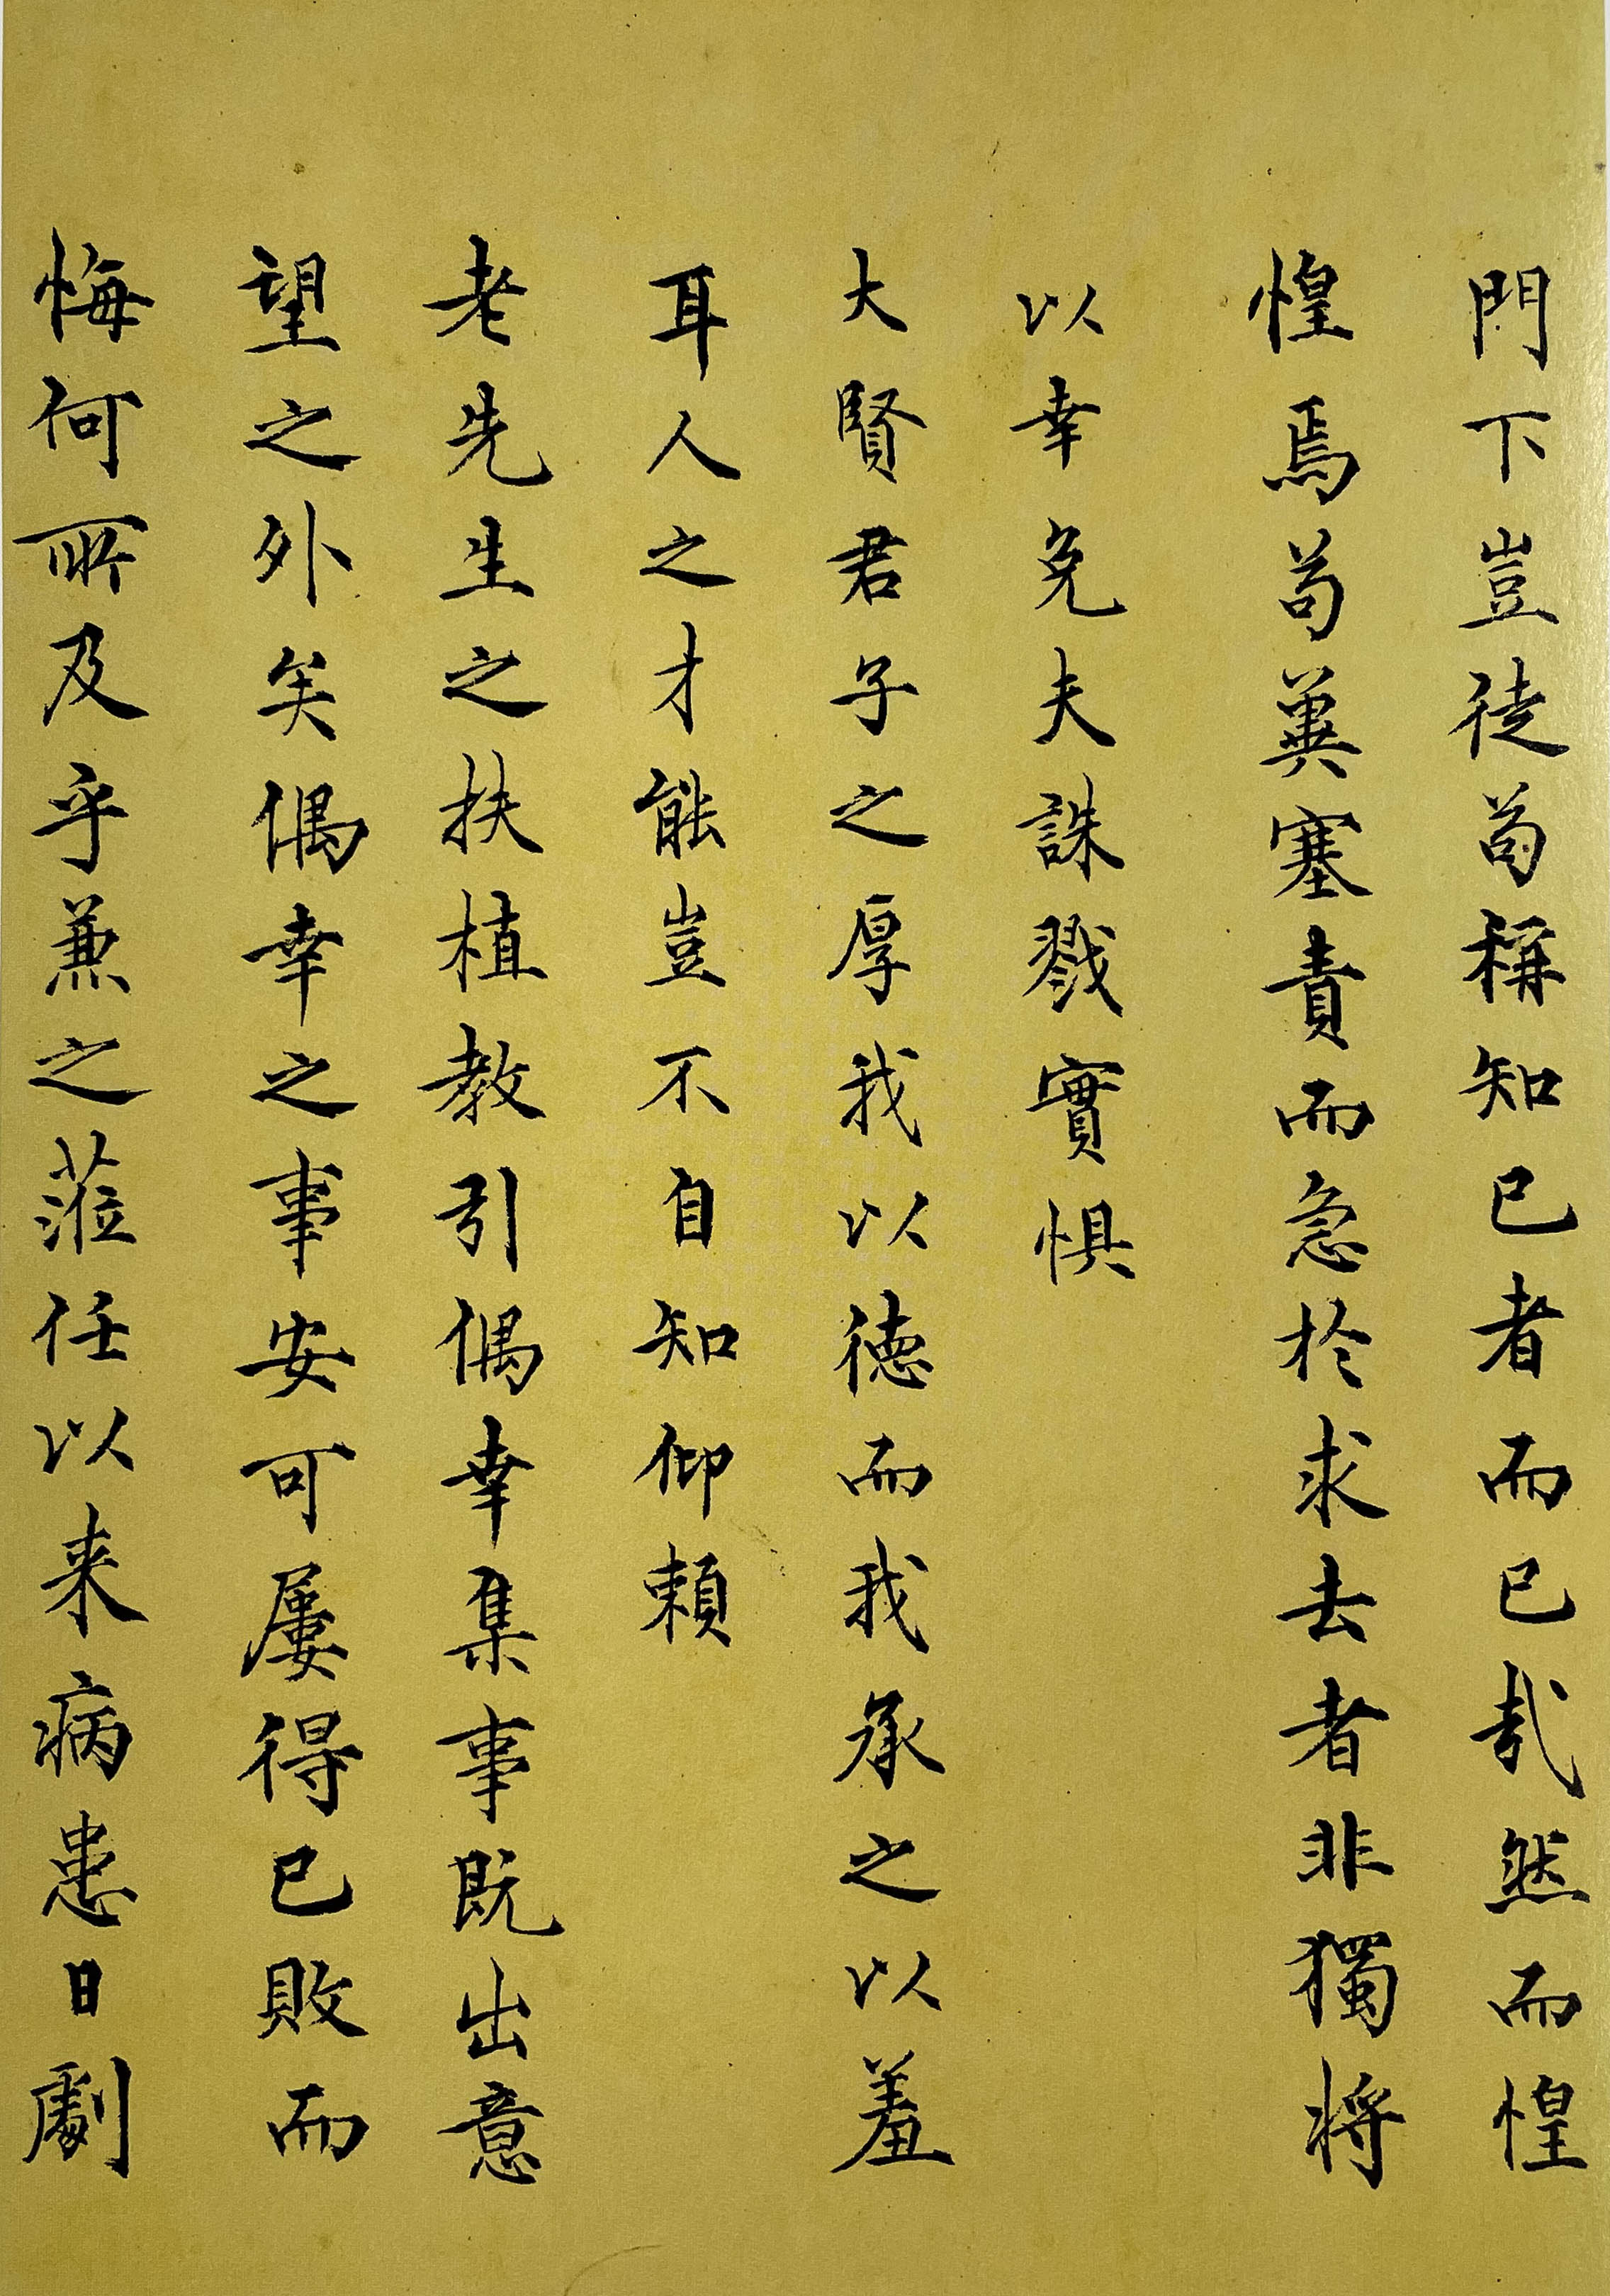 門下豈徒苟稱知己者而已哉然而惶
惶焉苟冀塞責而急於求去者非獨將
以幸免夫誅戮實惧
大賢君子之厚我以德而我承之以羞
耳人之才能豈不自知仰賴
老先生之扶植教引偶幸集事既出意
望之外矣偶幸之事安可屢得已敗而
悔何所及乎兼之蒞任以来病患日劇